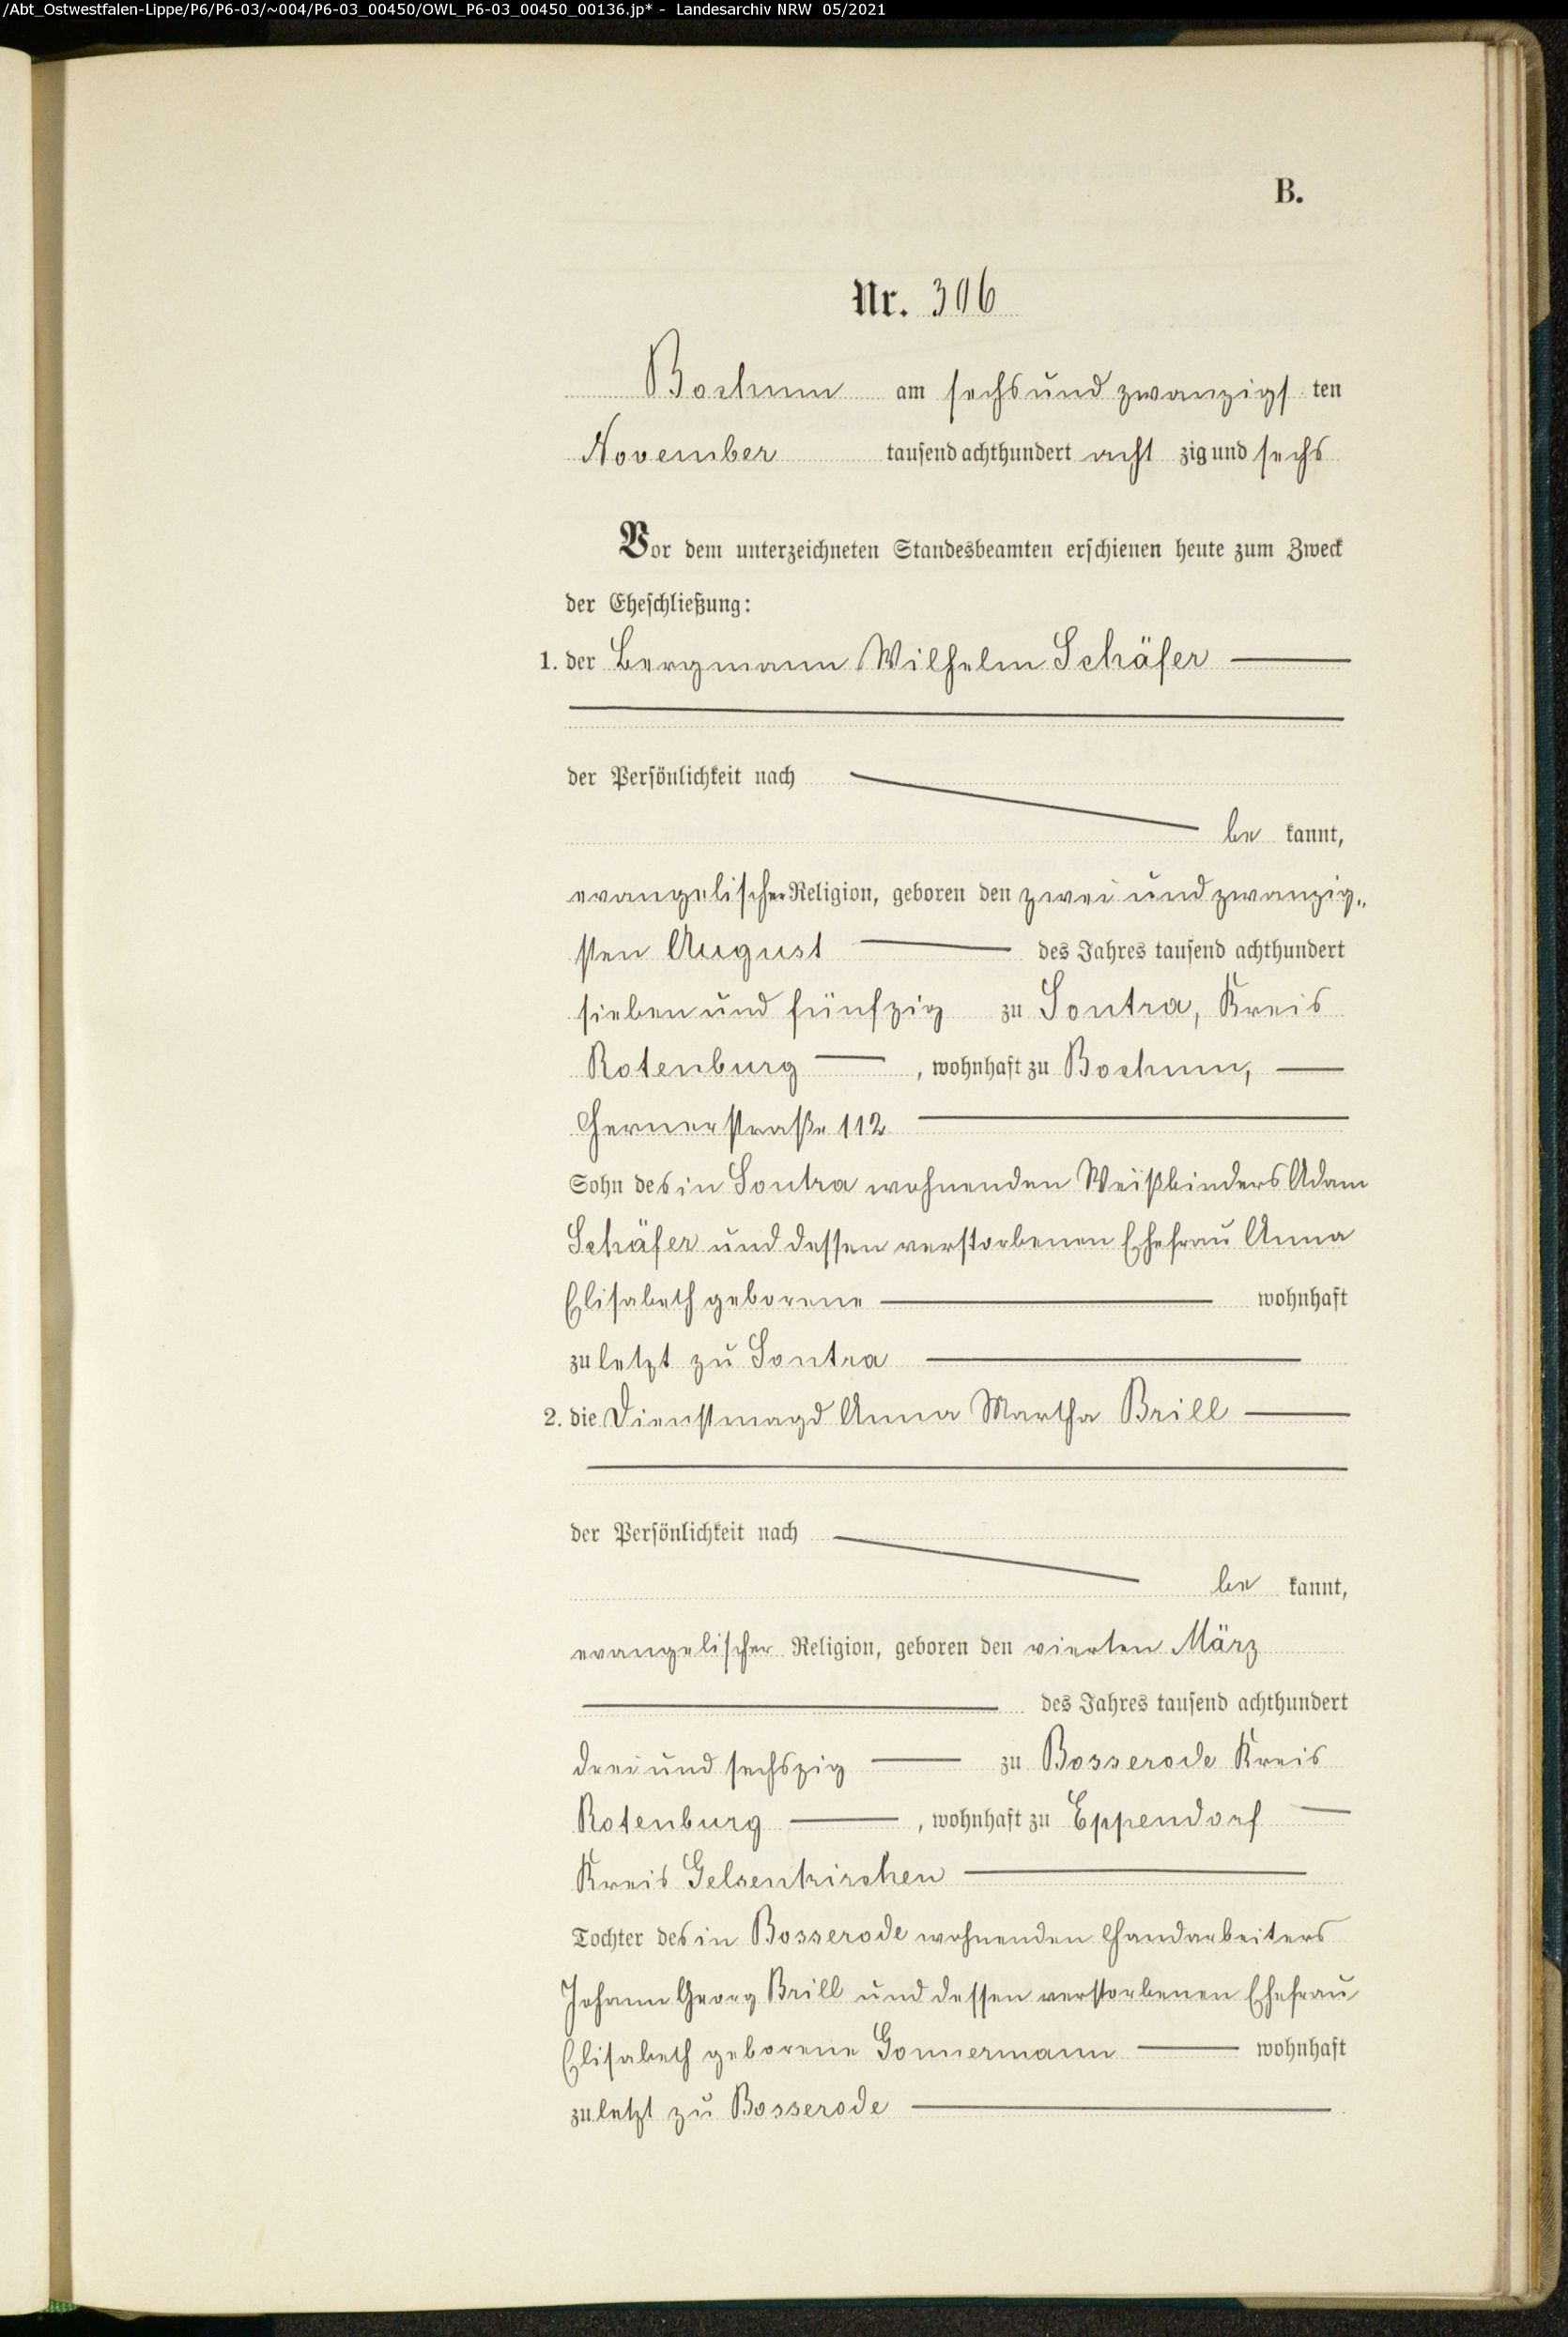 /Abt_Ostwestfalen-Lippe/P6/P6-03/~004/P6-03_00450/OWL_P6-03_00450_00136.jp* - Landesarchiv NRW 05/2021
B.
Nr. 306
Bochum am sechsundzwanzigsten
November tausend achthundert achtzig und sechs
Vor dem unterzeichneten Standesbeamten erschienen heute zum Zweck
der Eheschließung:
1. der Bergmann Wilhelm Schäfer
der Persönlichkeit nach
bekannt,
evangelischer Religion, geboren den zwei und zwanzig„
sten August des Jahres tausend achthundert
sieben und fünfzig zu Sontra, Kreis
Rotenburg, wohnhaft zu Bochum,
Hernerstraße 112
Sohn des in Sontra wohnenden Weißbinders Adam
Schäfer und dessen verstorbenen Ehefrau Anna
Elisabeth geborene wohnhaft
zuletzt zu Sontra
2. die Dienstmagd Anna Martha Brill
der Persönlichkeit nach
bekannt,
evangelischer Religion, geboren den vierten März
des Jahres tausend achthundert
drei und sechszig zu Bosserode Kreis
Rotenburg, wohnhaft zu Eppendorf
Kreis Gelsenkirchen
Tochter des in Bosserode wohnenden Handarbeiters
Johann Georg Brill und dessen verstorbenen Ehefrau
Elisabeth geborene Gonnermann wohnhaft
zuletzt zu Bosserode